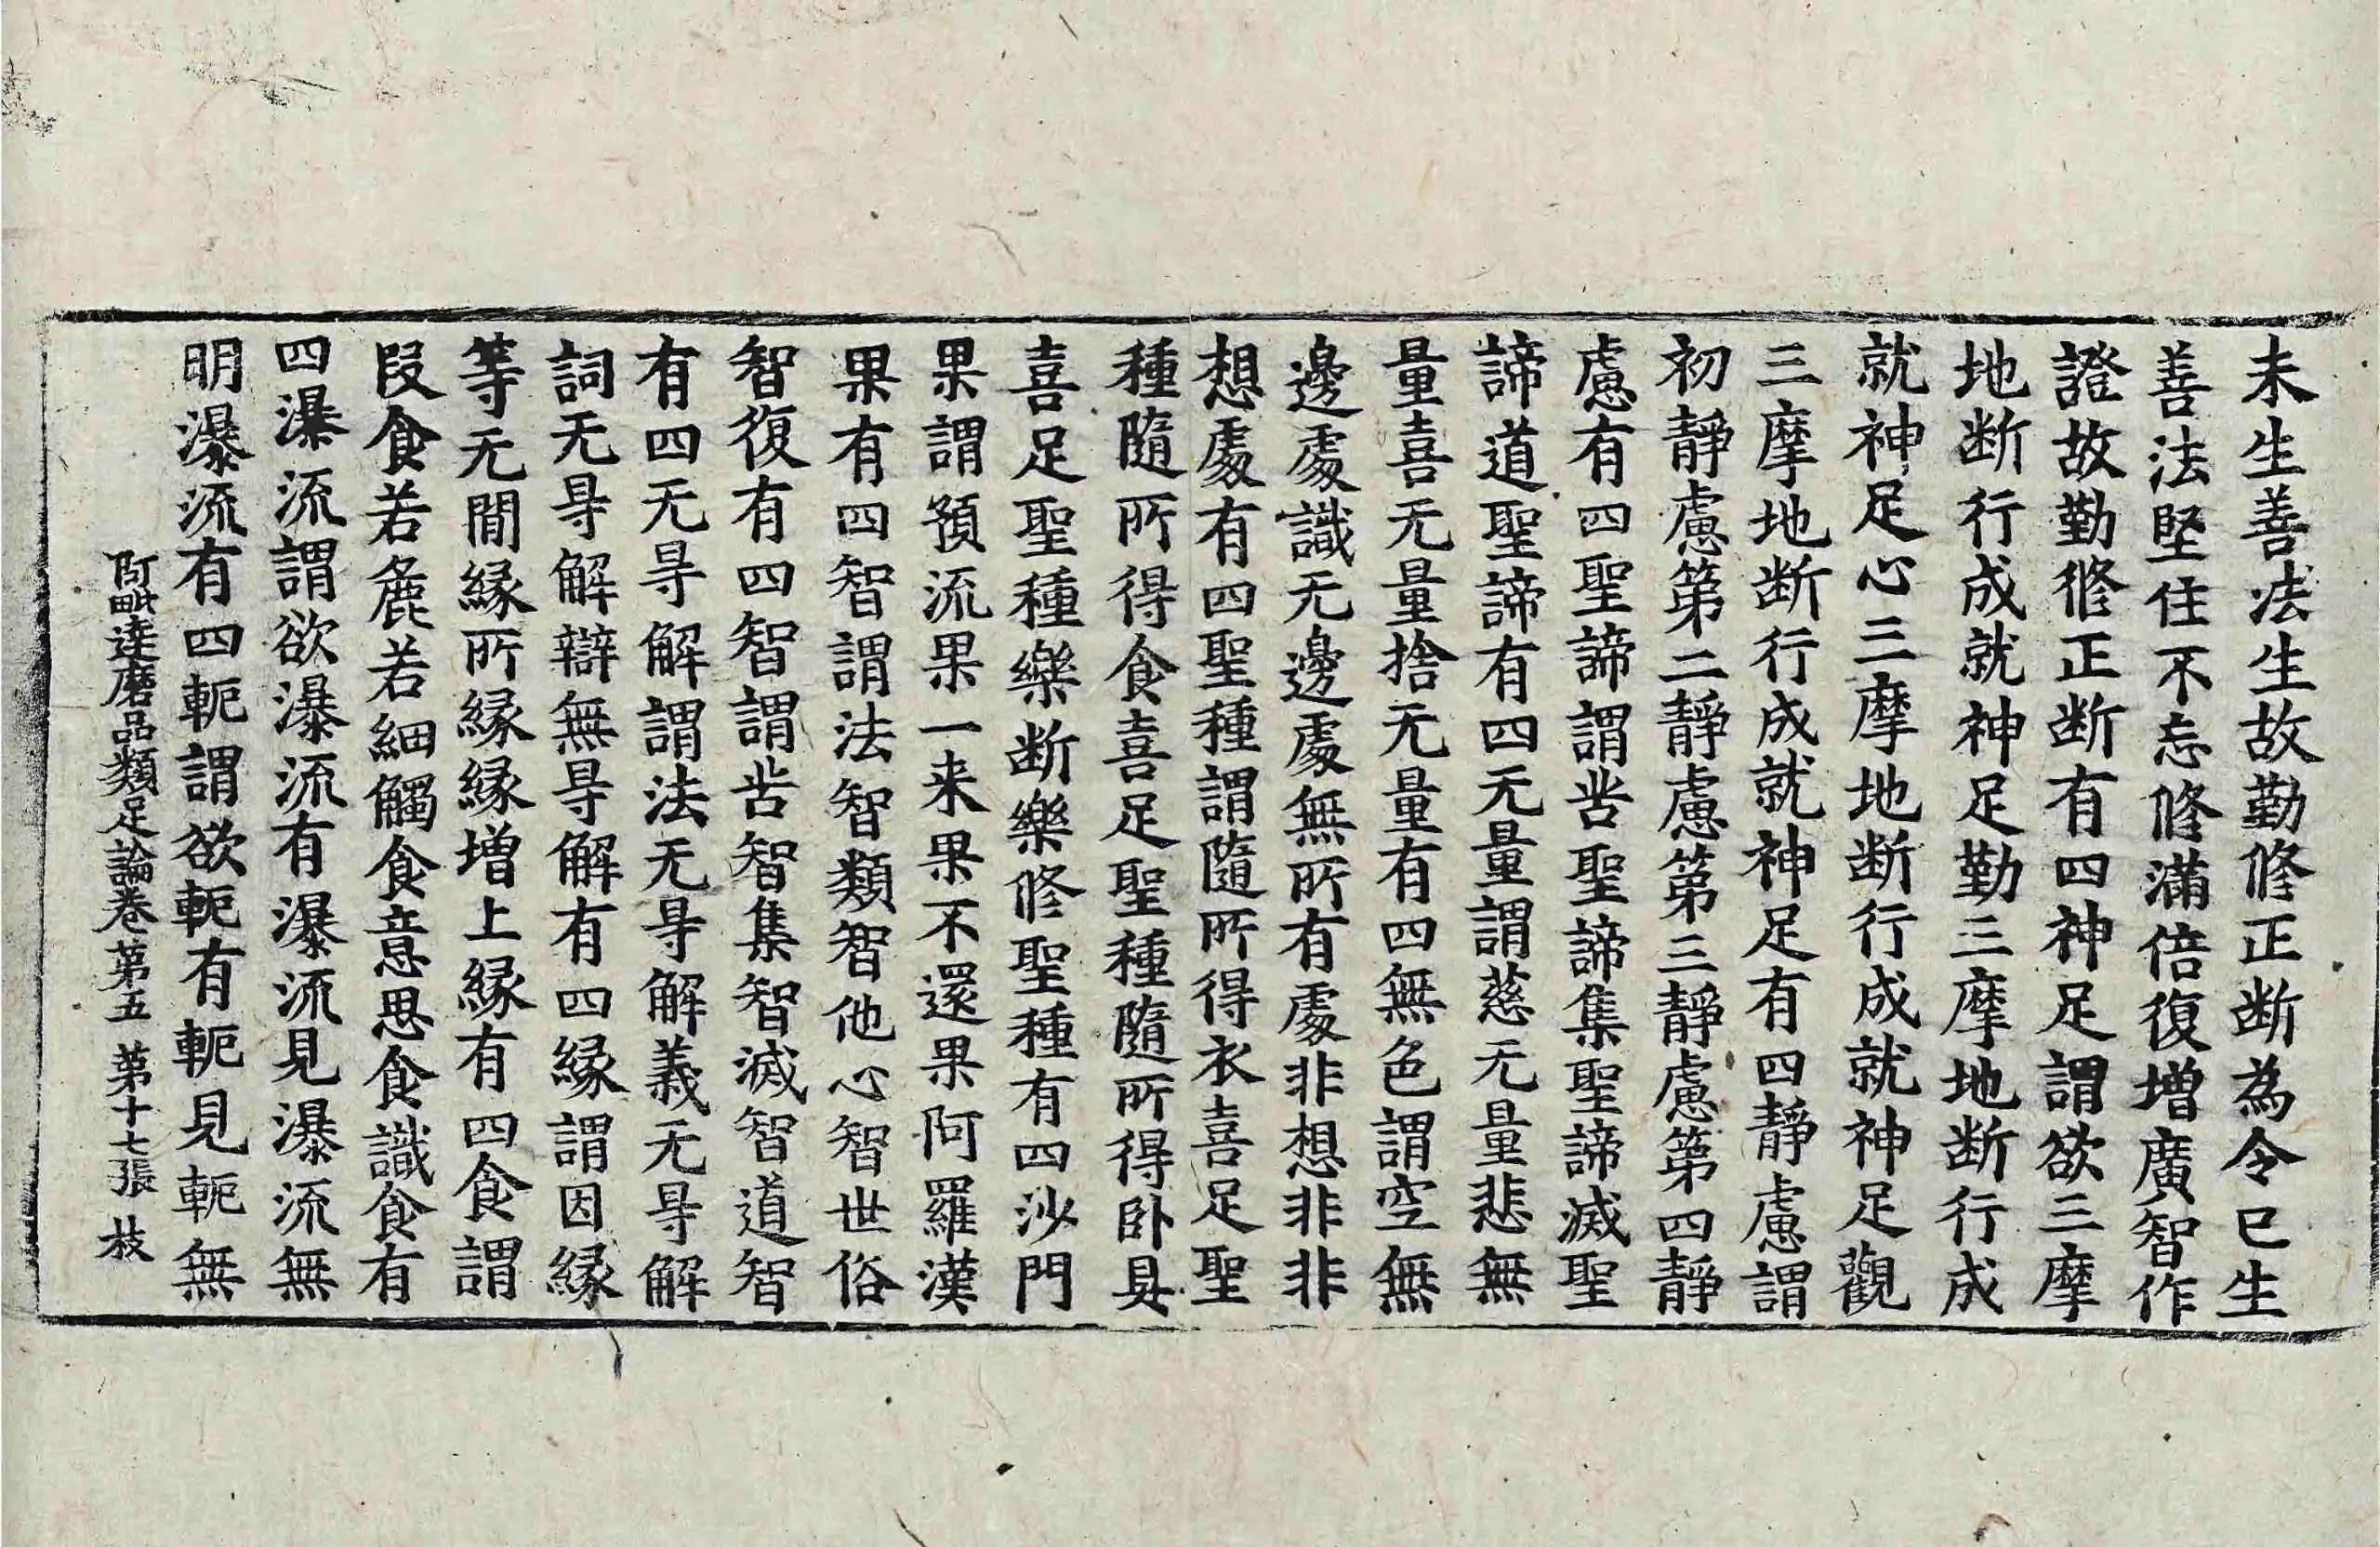 未生善法生故勤修正断為令已生
善法堅住不忘修滿倍復增廣智作
證故勤修正断有四神足謂欲三摩
地断行成就神足勤三摩地断行成
就神足心三摩地断行成就神足觀
三摩地断行成就神足有四靜慮謂
初靜慮第二靜慮第三靜慮第四靜
慮有四聖諦謂苦聖諦集聖諦滅聖
諦道聖諦有四无量謂慈无量悲無
量喜无量捨无量有四無色謂空無
邊處識无邊處無所有處非想非非
想處有四聖種謂隨所得衣喜足聖
種隨所得食喜足聖種隨所得卧具
喜足聖種樂断樂修聖種有四沙門
果謂預流果一来果不還果阿羅漢
果有四智謂法智類智他心智世俗
智復有四智謂苦智集智滅智道智
有四无㝵解謂法无㝵解義无㝵解
詞无㝵解辯無㝵解有四緣謂因緣
等无間緣所緣緣增上緣有四食謂
段食若麁若細觸食意思食識食有
四瀑流謂欲瀑流有瀑流見瀑流無
明瀑流有四軛謂欲軛有軛見軛無
阿毗達磨品類足論卷第五 第十七張 枝